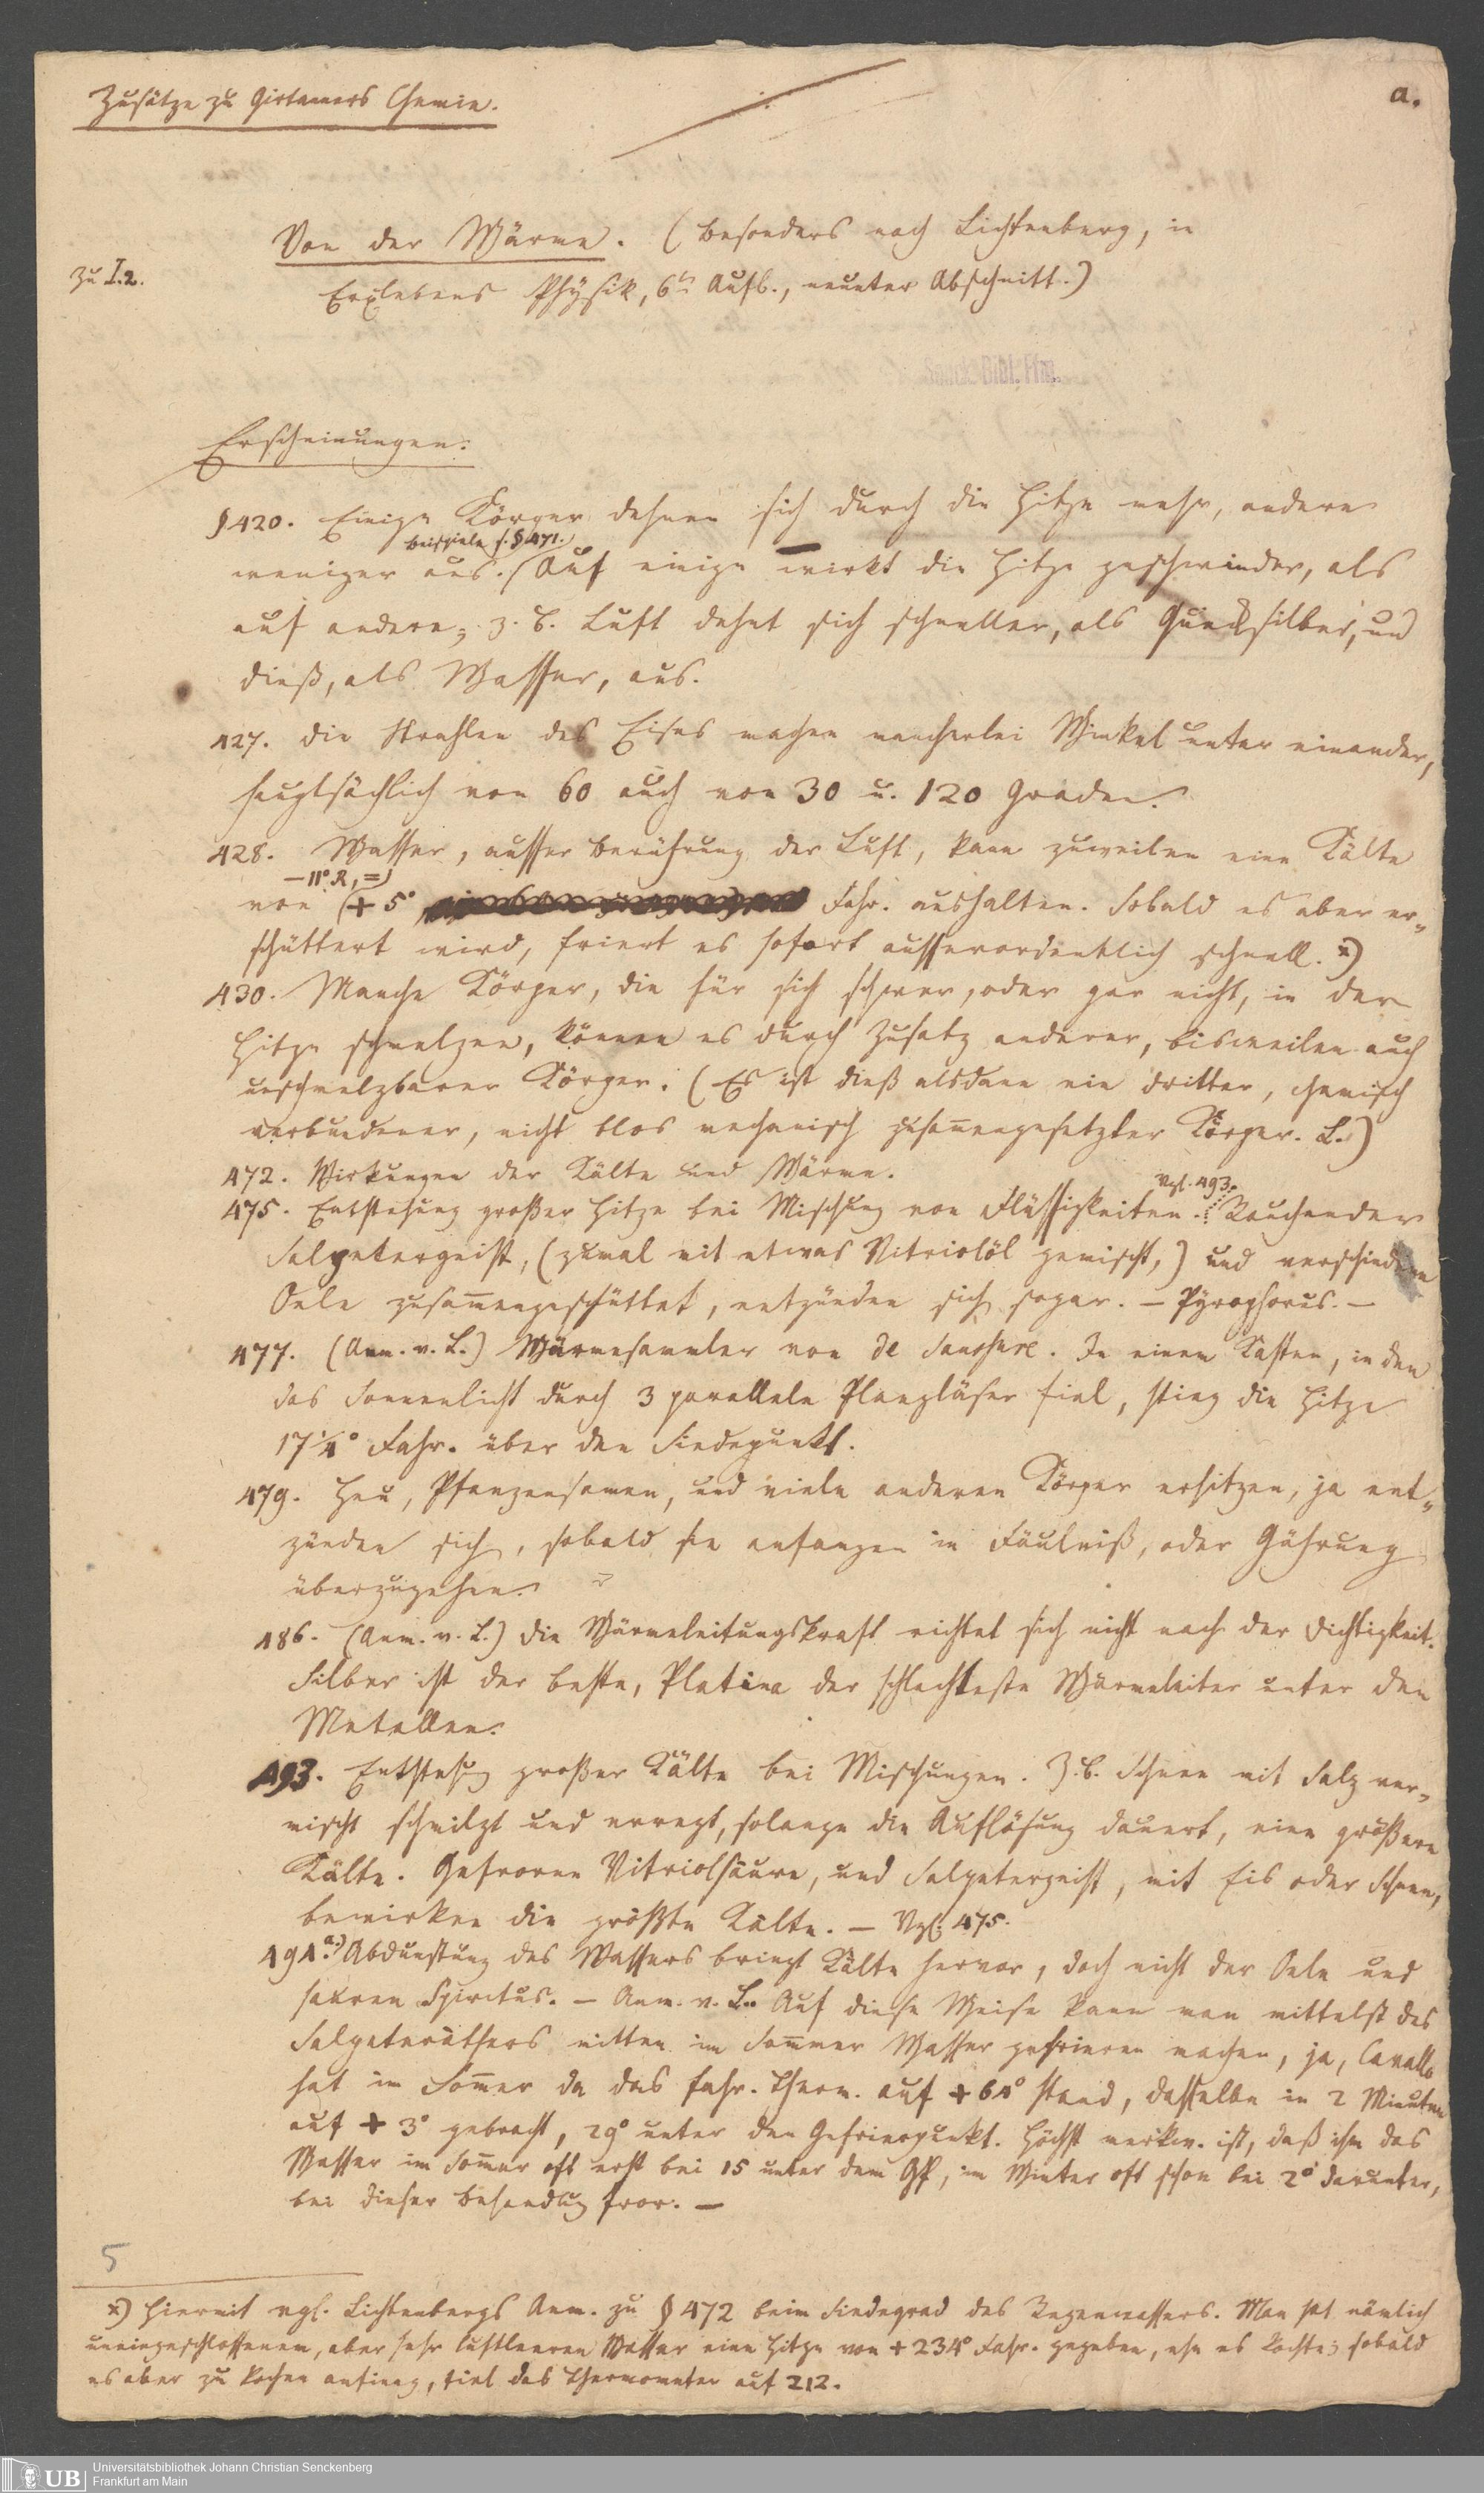 Zusätze zu Girtanners Chemie.
a.
Von der Wärme. (Besonders nach Lichtenberg, in
zu I.2.
Erxlebens Physik, 6te Aufl., neunter Abschnitt.)
Senck. Bibl. Ffm.
Erscheinungen.
§ 420. Einige Körper dehnen sich durch die Hitze mehr, andere
Beispiele s. § 471.
weniger aus. Auf einige wirkt die Hitze geschwinder, als
auf andere; z. B. Luft dehnt sich schneller, als Quecksilber, und
dieß, als Wasser, aus.
427. Die Strahlen des Eises machen mancherlei Winkel unter einander,
hauptsächlich von 60 auch von 30 u. 120 Graden.
428. Wasser, ausser Berührung der Luft, kann zuweilen eine Kälte
– 11° R, =)
von (+ 5° Fahr. aushalten. Sobald es aber er-
schüttert wird, friert es sofort ausserordentlich schnell. *)
430. Manche Körper, die für sich schwer, oder gar nicht, in der
Hitze schmelzen, können es durch Zusatz anderer, bisweilen auch
unschmelzbarer Körper. (Es ist dieß alsdann ein dritter, chemisch
verbundener, nicht blos mechanisch zusam̅engesetzter Körper. L.)
472. Wirkungen der Kälte und Wärme.
Vgl. 493.
475. Entstehung großer Hitze bei Mischung von Flüssigkeiten. Rauchender
Salpetergeist, (zumal mit etwas Vitriolöl gemischt,) und verschiedene
Oele zusam̅engeschüttet, entzünden sich sogar. – Pyrophorus. –
477. (Anm. v. L.) Wärmesammler von de Saussure. In einem Kasten, in den
das Sonnenlicht durch 3 parallele Plangläser fiel, stieg die Hitze
17 1/4° Fahr. über den Siedepunkt.
479. Heu, Pflanzensamen, und viele anderen Körper erhitzen, ja ent-
zünden sich, sobald sie anfangen in Fäulniß, oder Gährung
überzugehen.
486. (Anm. v. L.) Die Wärmeleitungskraft richtet sich nicht nach der Dichtigkeit.
Silber ist der beste, Platina der schlechteste Wärmeleiter unter den
Metallen.
493. Entstehung großer Kälte bei Mischungen. Z. B. Schnee mit Salz ver-
mischt schmilzt und erregt, solange die Auflösung dauert, eine größere
Kälte. Gefrorene Vitriolsäure, und Salpetergeist, mit Eis oder Schnee,
bewirken die größte Kälte. – Vgl. 475.
494. a.) Abdunstung des Wassers bringt Kälte hervor, doch nicht der Oele und
sauren Spiritus. – Anm. v. L. Auf diese Weise kann man mittelst des
Salpeteräthers mitten im Som̅er Wasser gefrieren machen, ja, Cavallo
hat im Som̅er da das Fahr. Therm. auf + 64° stand, dasselbe in 2 Minuten
auf + 3° gebracht, 29° unter den Gefrierpunkt. Höchst merkw. ist, daß ihm das
Wasser im Som̅er oft erst bei 15 unter dem Gfp, im Winter oft schon bei 2° darunter,
bei dieser Behandlung fror. –
5
*) Hiermit vgl. Lichtenbergs Anm. zu § 472 beim Siedegrad des Regenwassers. Man hat nämlich
uneingeschlossenem, aber sehr luftleeren Wasser eine Hitze von + 234° Fahr. gegeben, ehe es kochte; sobald
es aber zu kochen anfieng, fiel das Thermometer auf 212.
UB Universitätsbibliothek Johann Christian Senckenberg
Frankfurt am Main